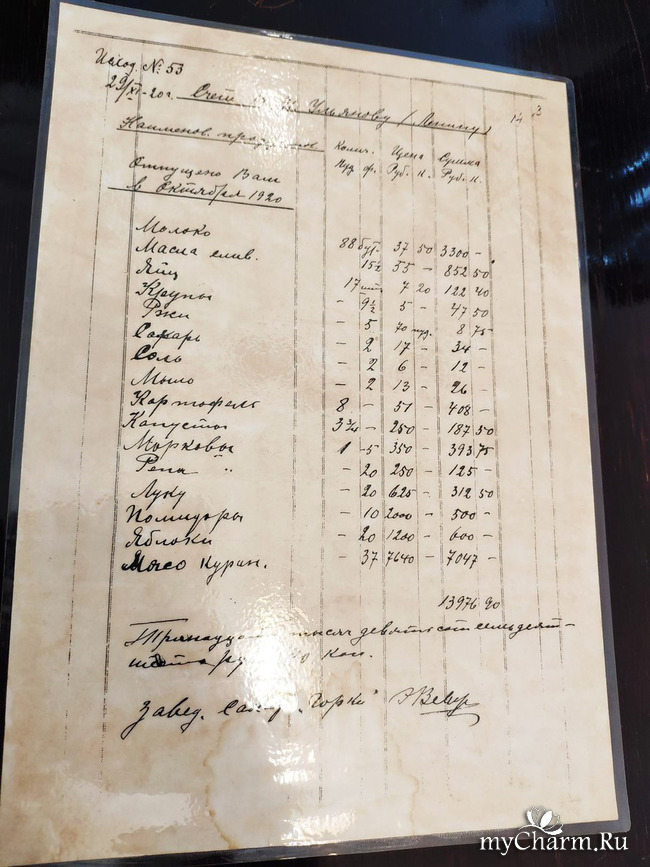 Исход. № 53
29/XI-20 г. Счет В. И. Ульянову (Ленину)
Наименов. продуктов Колич. Цена Сумма
Пуд. ф. Руб. к. Руб. к.
Отпущено Вам
в Октябре 1920
Молоко 88 бут. 37 50 3300 –
Масла слив. 15½ 55 – 852 50
Яиц 17 шт. 7 20 122 40
Крупы – 9½ 5 – 47 50
Ржи – 5 70 пуд. 8 75
Сахарь – 2 17 – 34 –
Соль – 2 6 – 12 –
Мыло – 2 13 – 26 –
Картофель 8 – 51 – 408 –
Капусты 3¾ – 250 – 187 50
Морковы 1 – 5 350 – 393 75
Репа " – 20 250 – 125 –
Луку – 20 625 – 312 50
Помидоры – 10 2000 – 500 –
Яблоки – 20 1200 – 600 –
Мясо курин. – 37 7640 – 7047 –
13976 90
Тринадцать тысяч девятьсот семьдесят
шесть коп.
Завед. "Горки"
myCharm.Ru